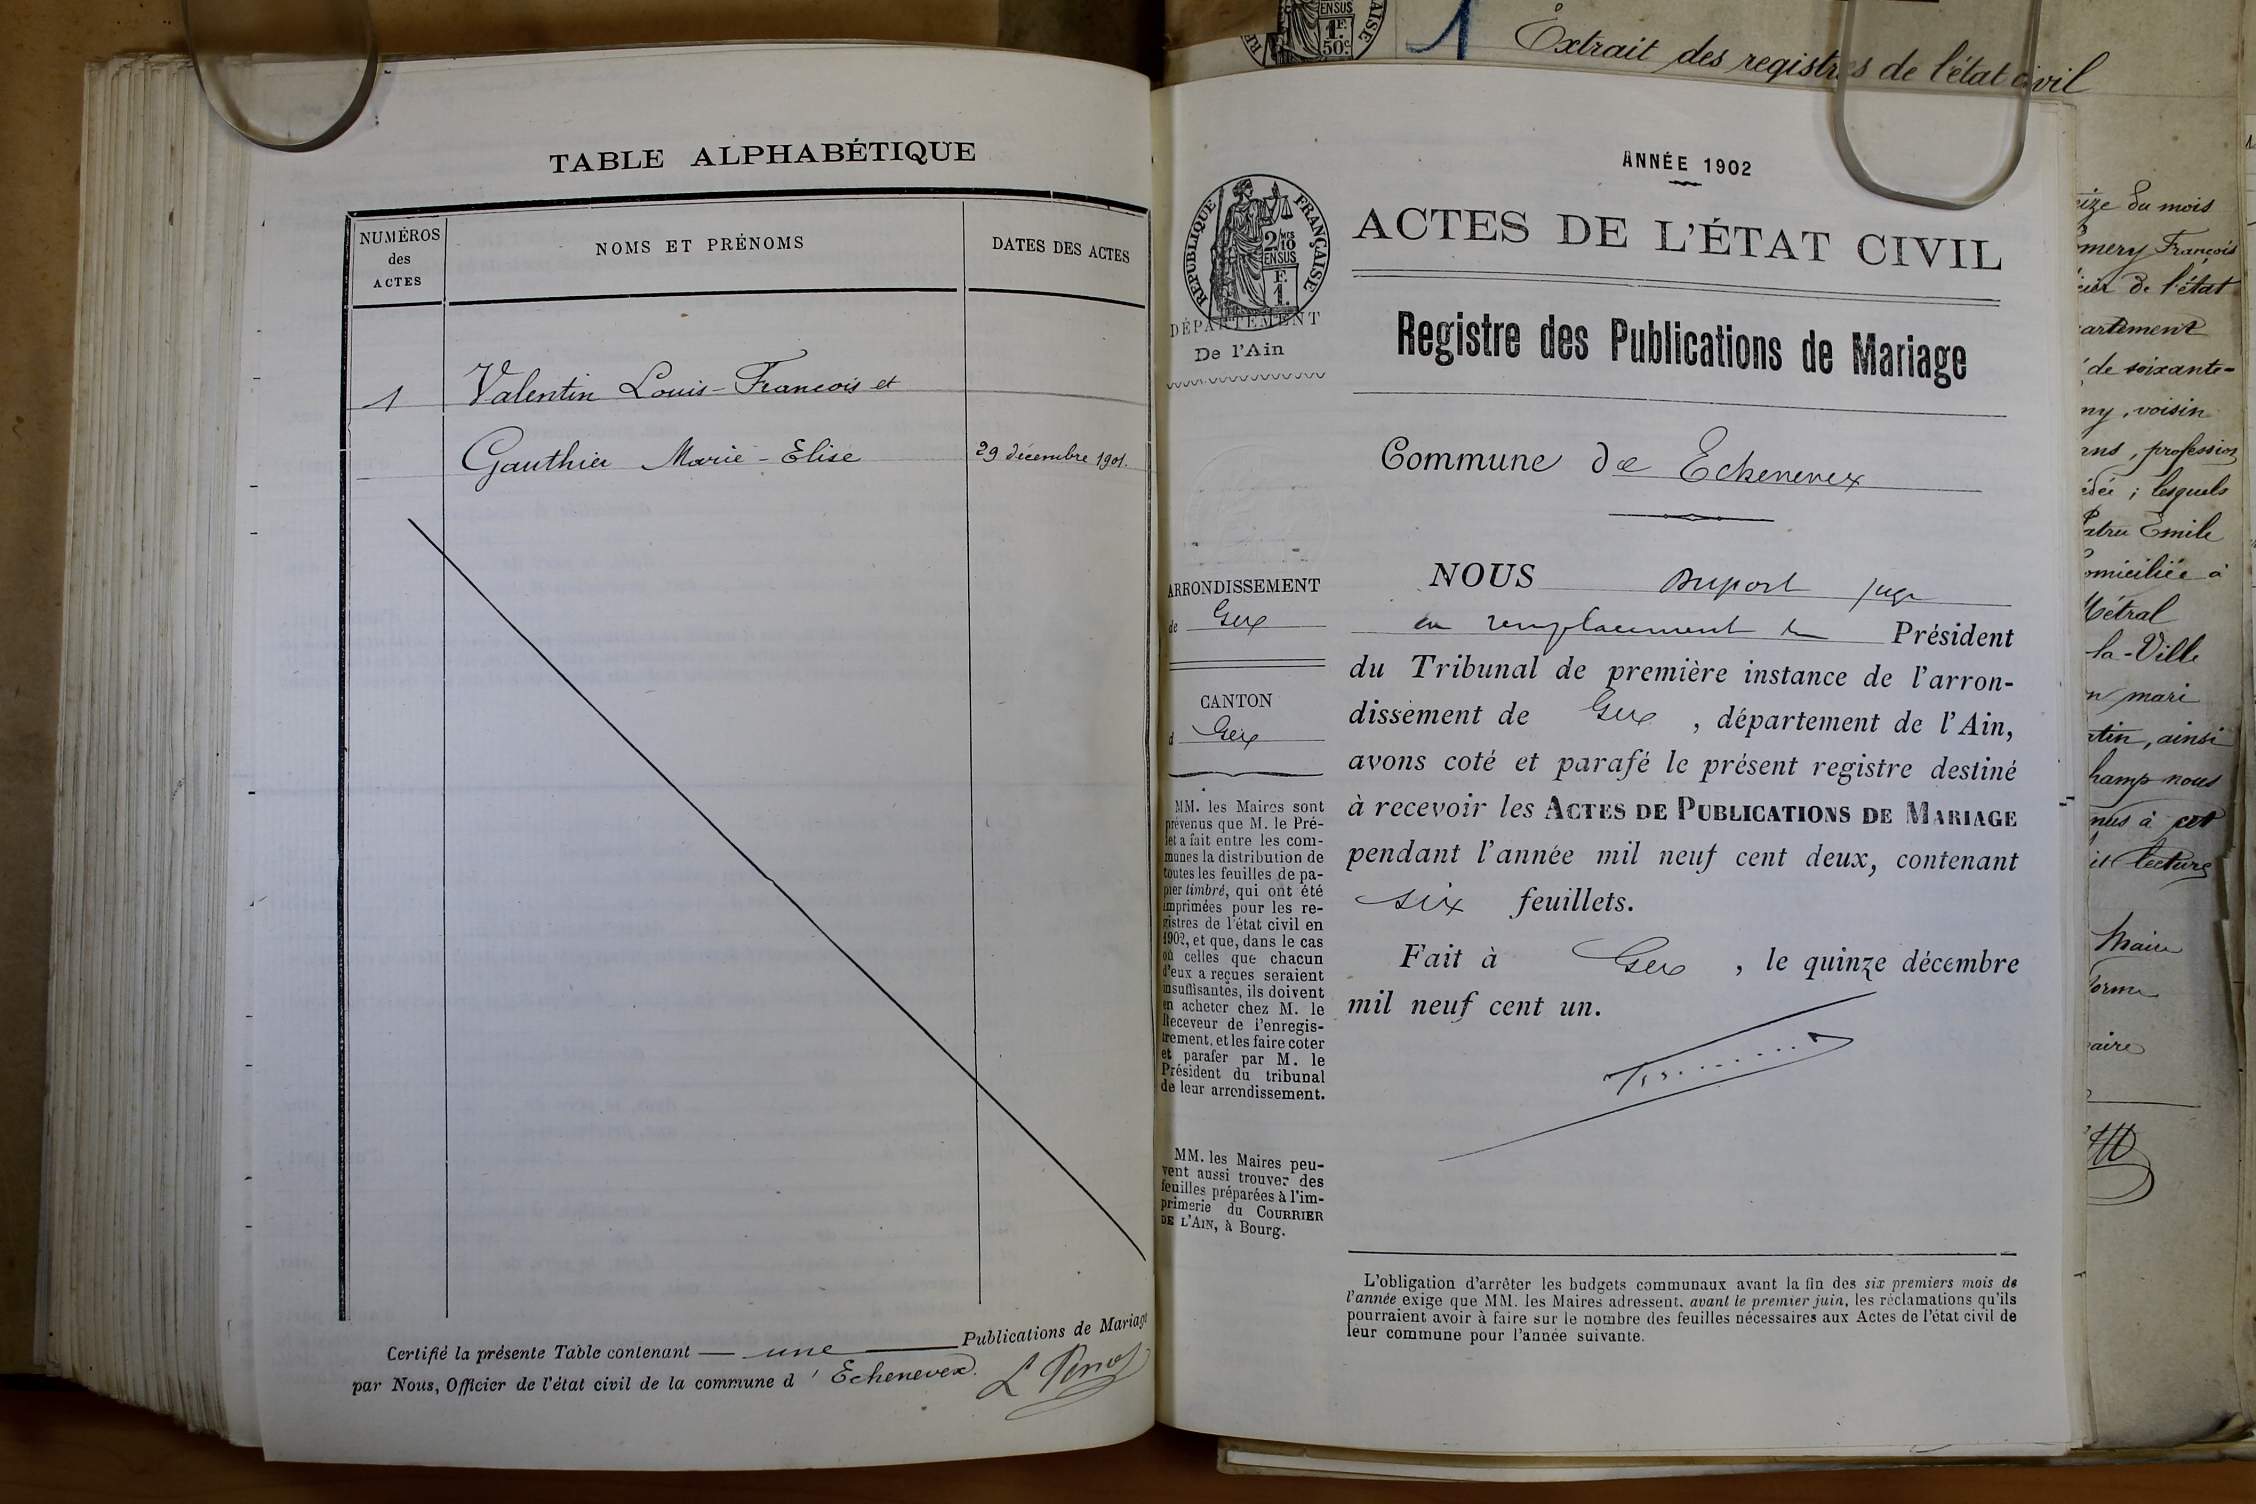 TABLE ALPHABÉTIQUE
NUMÉROS
des
ACTES
NOMS ET PRÉNOMS
DATES DES ACTES
1
Valentin Louis-François et
Gauthier Marie-Elise
29 décembre 1901.
Certifié la présente Table contenant — une — Publications de Mariage
par Nous, Officier de l'état civil de la commune d'Echenevex.
L Perno
ENSUS
1F.
50c
Extrait des registres de l'état civil
ANNÉE 1902
ACTES DE L'ÉTAT CIVIL
RÉPUBLIQUE FRANÇAISE
2/10
EN SUS
F.
1.
DÉPARTEMENT
De l'Ain
Registre des Publications de Mariage
Commune de Echenevex
ARRONDISSEMENT
de Gex
CANTON
d Gex
MM. les Maires sont
prévenus que M. le Pré-
fet a fait entre les com-
munes la distribution de
toutes les feuilles de pa-
pier timbré, qui ont été
imprimées pour les re-
gistres de l'état civil en
1902, et que, dans le cas
où celles que chacun
d'eux a reçues seraient
insuffisantes, ils doivent
en acheter chez M. le
Receveur de l'enregis-
trement, et les faire coter
et parafer par M. le
Président du tribunal
de leur arrondissement.
MM. les Maires peu-
vent aussi trouver des
feuilles préparées à l'im-
primerie du COURRIER
DE L'AIN, à Bourg.
NOUS Duport juge
en remplacement du Président
du Tribunal de première instance de l'arron-
dissement de Gex, département de l'Ain,
avons coté et parafé le présent registre destiné
à recevoir les ACTES DE PUBLICATIONS DE MARIAGE
pendant l'année mil neuf cent deux, contenant
six feuillets.
Fait à Gex, le quinze décembre
mil neuf cent un.
L'obligation d'arrêter les budgets communaux avant la fin des six premiers mois de
l'année exige que MM. les Maires adressent, avant le premier juin, les réclamations qu'ils
pourraient avoir à faire sur le nombre des feuilles nécessaires aux Actes de l'état civil de
leur commune pour l'année suivante.
du mois
François
de l'état
de soixante-
voisin
profession
lesquels
Emile
à
Métral
la-Ville
mari
ainsi
nous
à cet
lecture
Maire